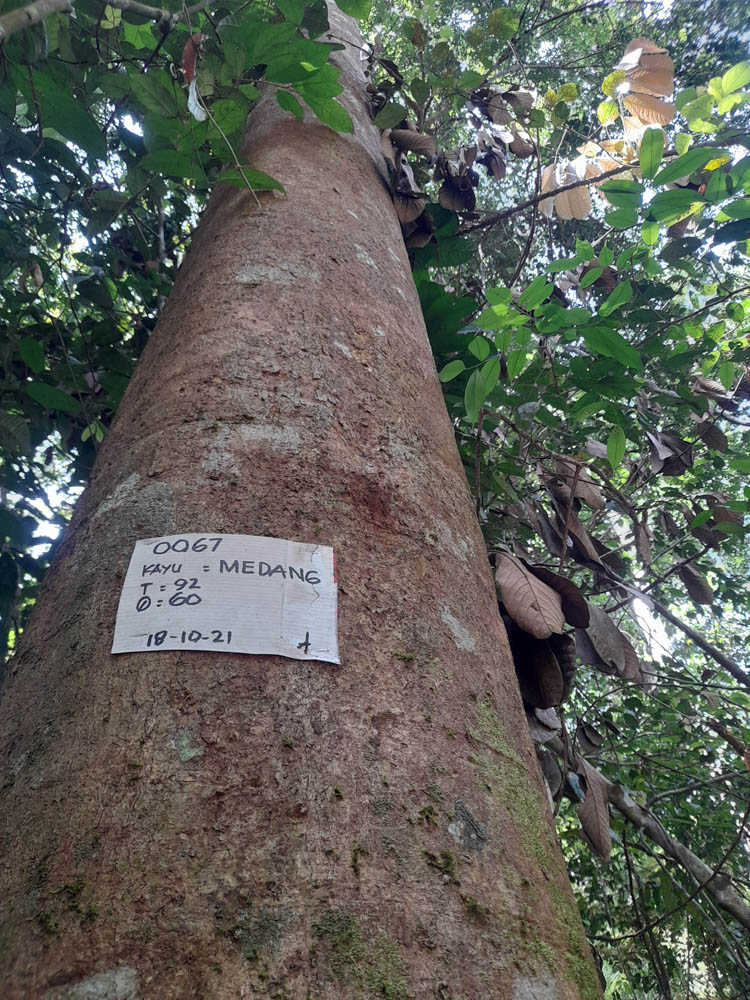 0067
KAYU = MEDANG
T = 92
Ø = 60
18-10-21